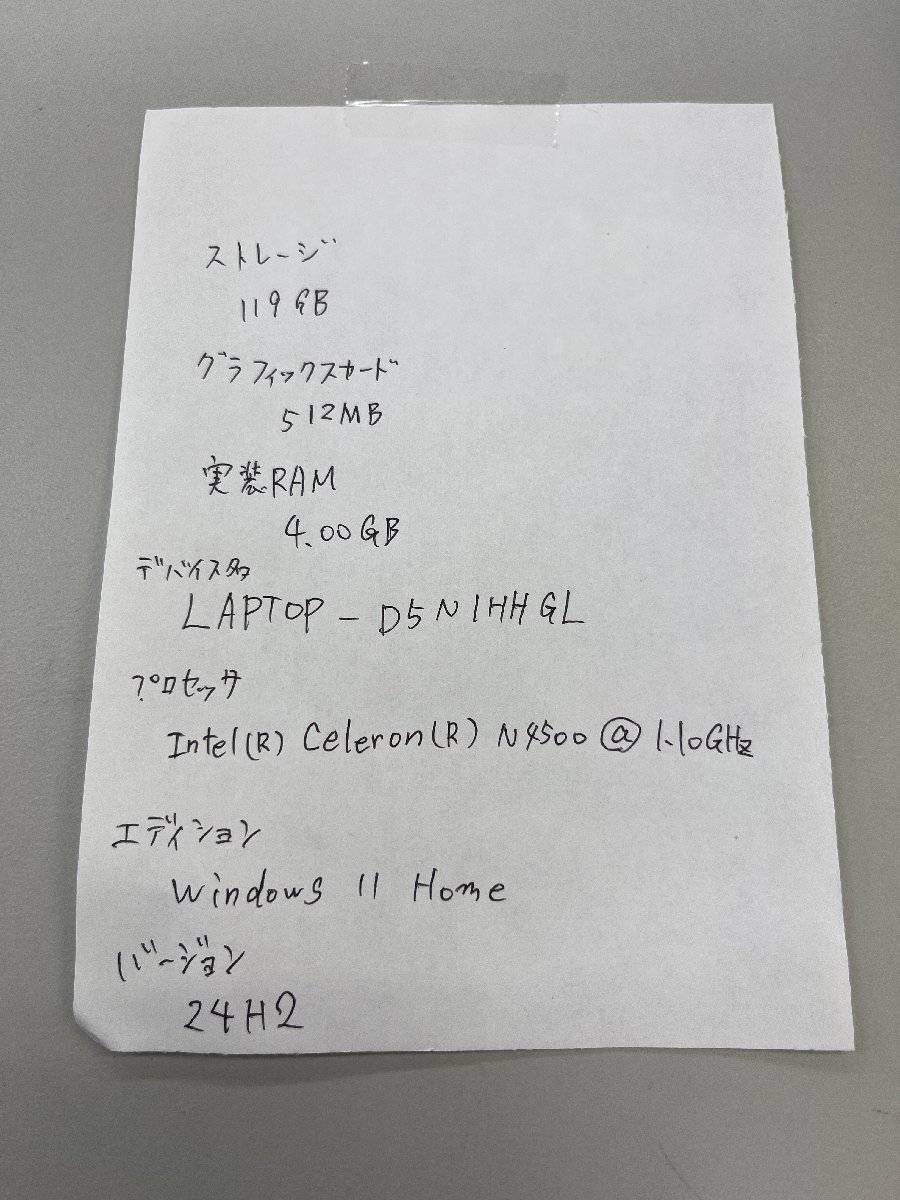 ストレージ
119GB
グラフィックスカード
512MB
実装RAM
4.00GB
デバイス名
LAPTOP-D5N1HHGL
プロセッサ
Intel(R) Celeron(R) N4500 @ 1.10GHz
エディション
Windows 11 Home
バージョン
24H2